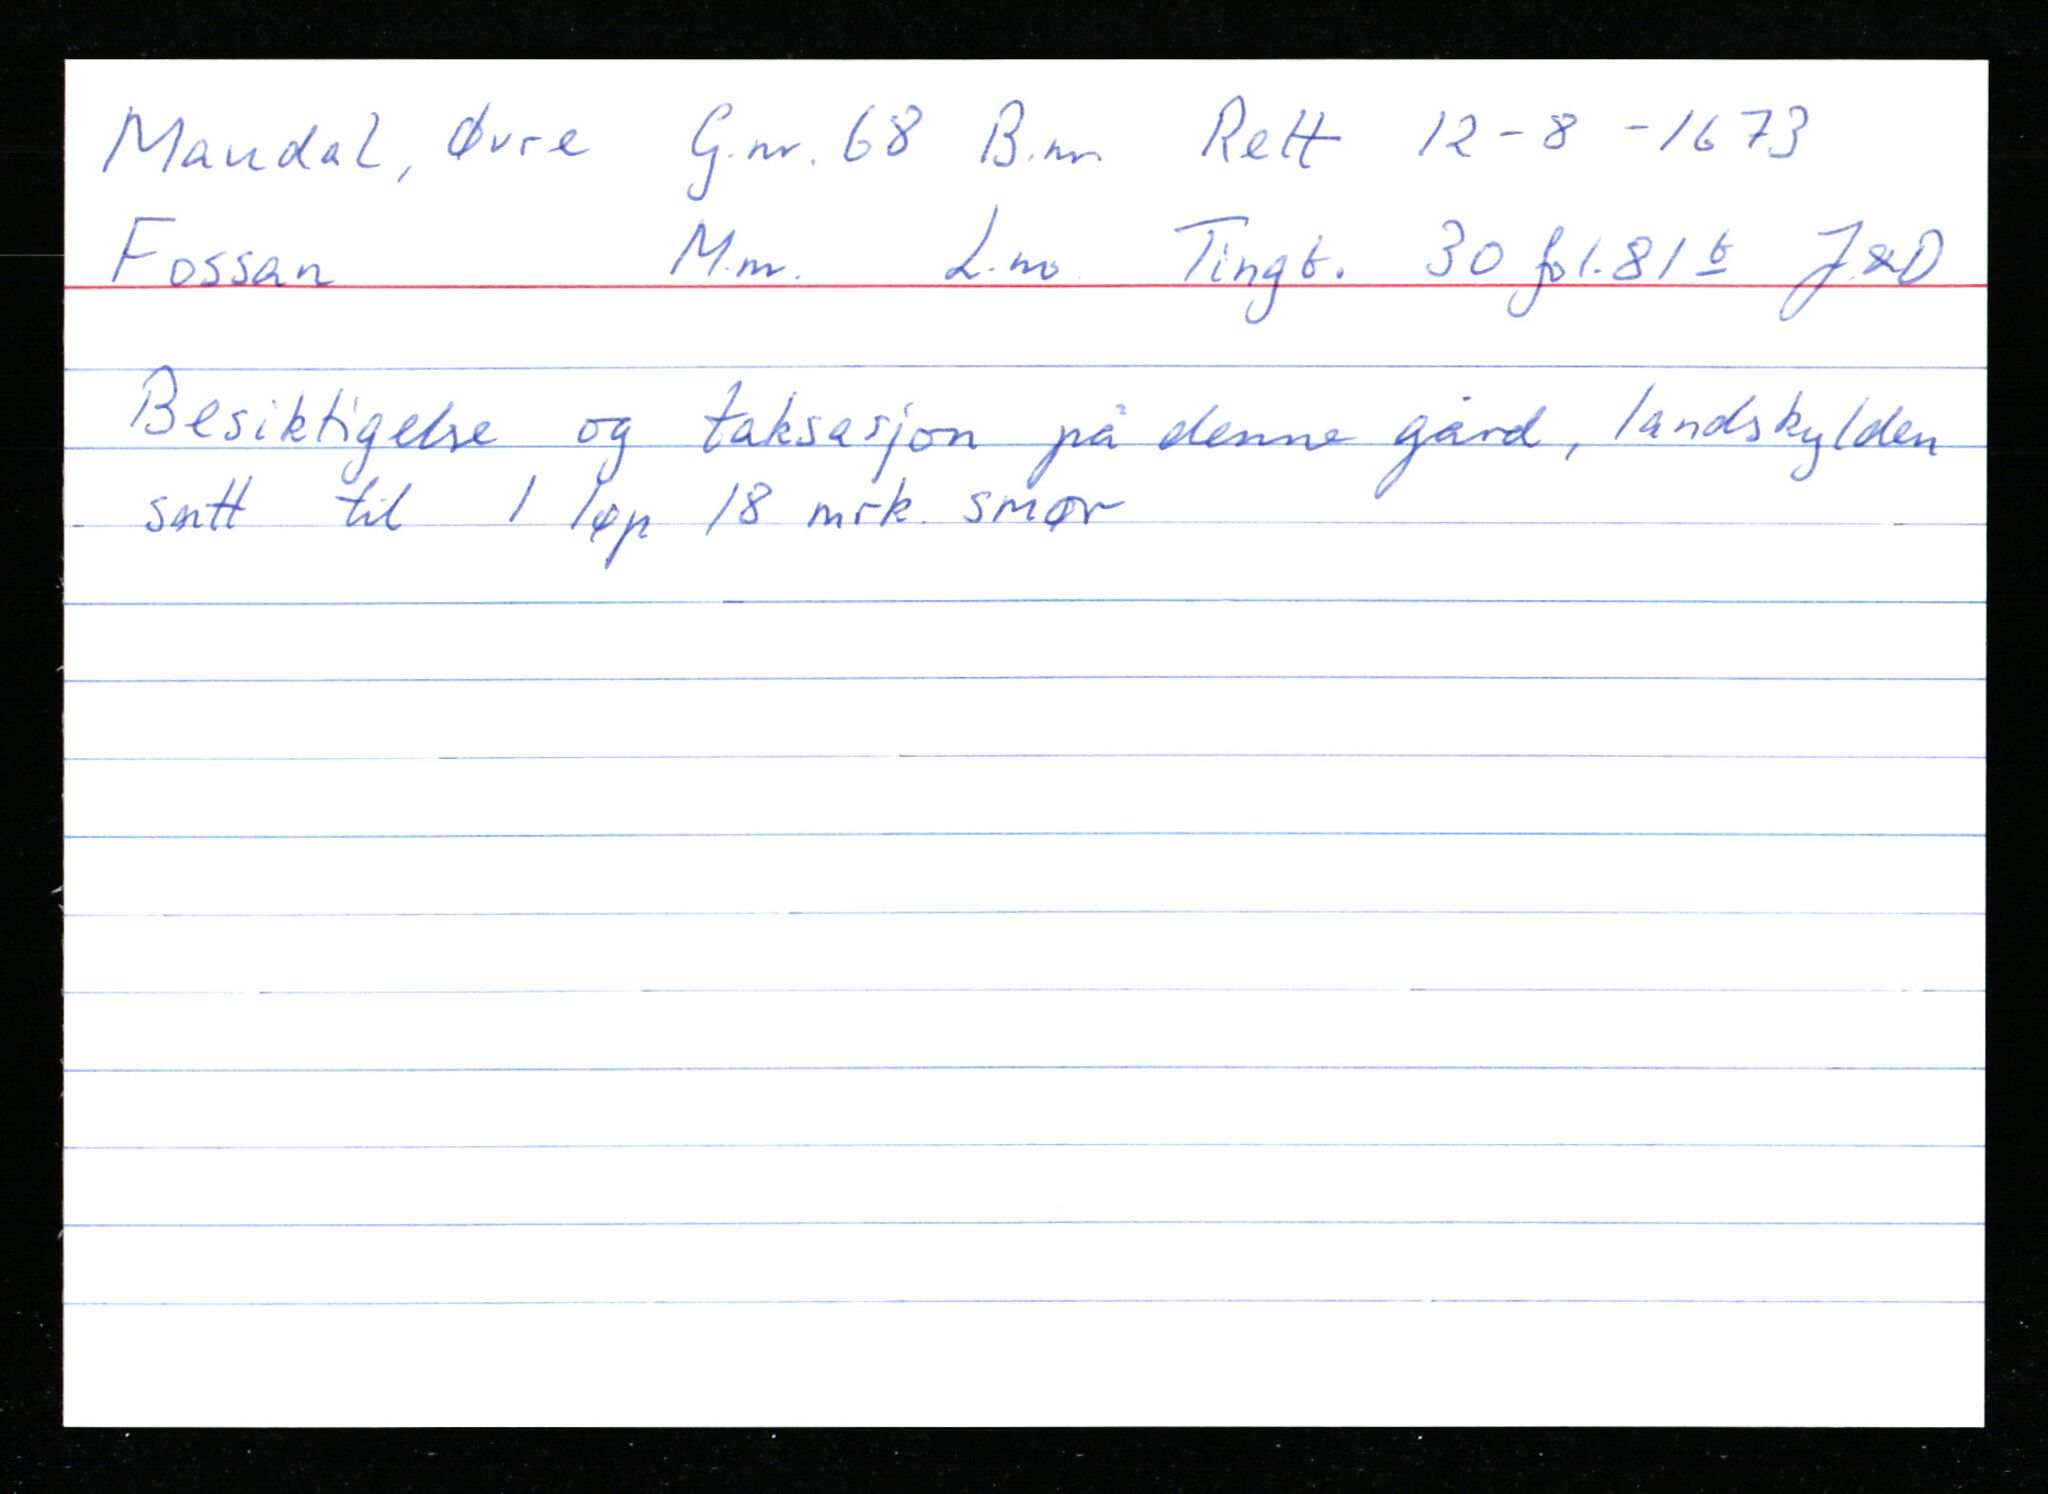 Maudal, Øvre G.nr. 68 B.nr. Rett 12-8-1673
Fossan M.nr. L.nr. Tingb. 30 fol. 81 b J&D
Besiktigelse og taksasjon på denne gård, landskylden
satt til 1 løp 18 mrk. smør